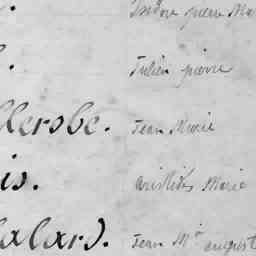 Isidore pierre Ma
Julien pierre
llerobe. Jean Marie
is. aristides Marie
alard. Jean Mie august